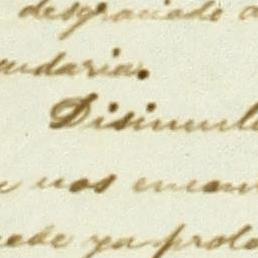 desgraciado a
undaria.
Disimul
nos encon
ede ya prolo